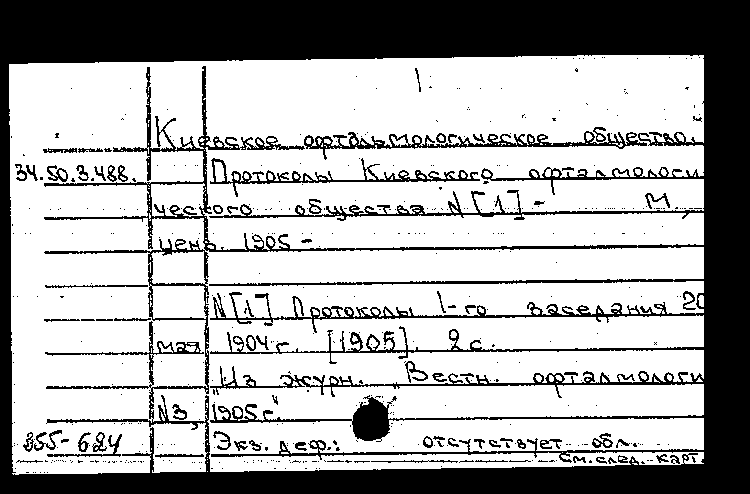 1.
Киевское офтальмологическое общество.
34.50.3.488. Протоколы Киевского офталмологи
ческого общества N [1] - М.,
ценз. 1905 -
N [1] Протоколы 1-го заседания 20
мая 1904 г. [1905]. 2 с.
"Из журн. "Вестн. офталмологи
N3, 1905 г."
355-624 Экз. деф.: отсутствует обл.
См. след. карт.